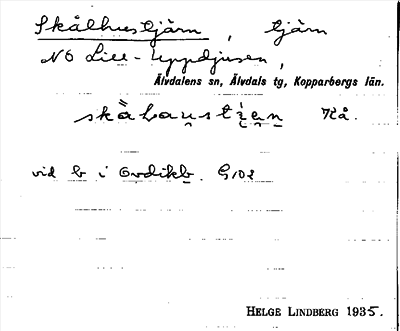 Skålhustjärn, tjärn
NO Lill-Uppdjusen,
Älvdalens sn, Älvdals tg, Kopparbergs län.
skàhaustjẹn Rå.
vid b i Ovdikb. G,02
HELGE LINDBERG 1935.